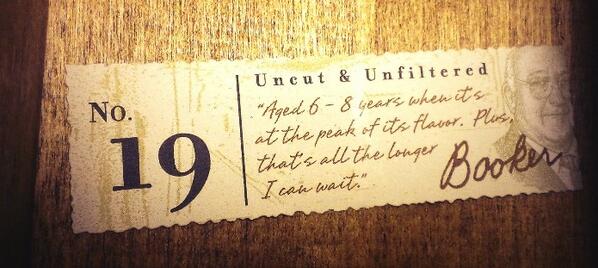 No.
19
Uncut & Unfiltered
"Aged 6 - 8 years when it's
at the peak of its flavor. Plus,
that's all the longer
I can wait."
Booker